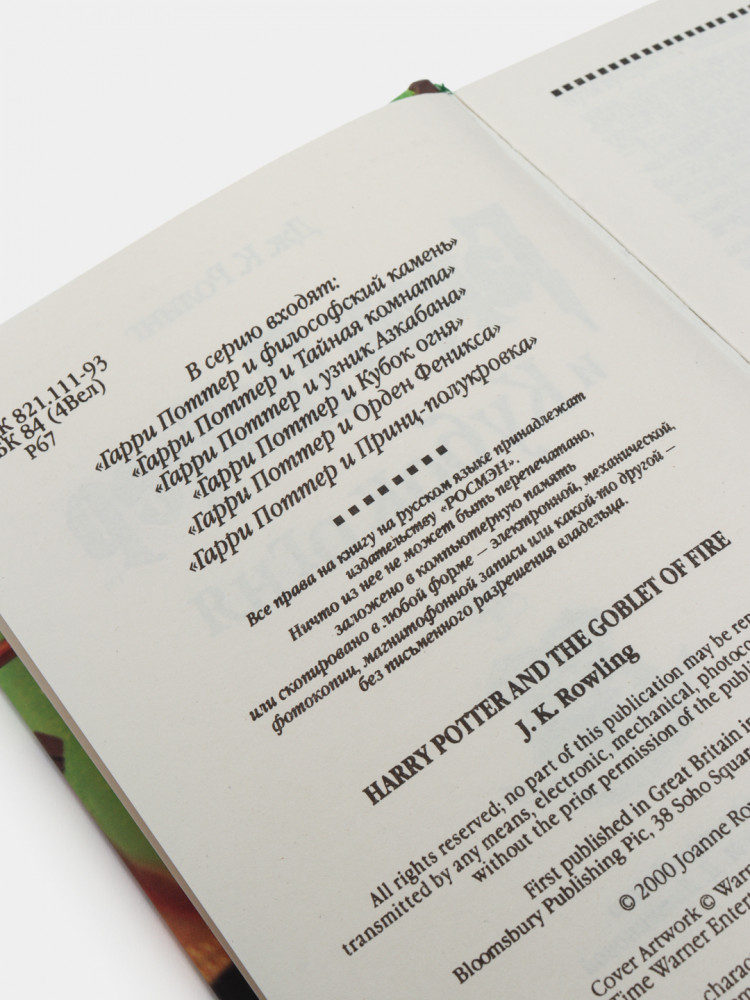 К 821.111-93
БК 84 (4Вел)
Р67
В серию входят:
«Гарри Поттер и философский камень»
«Гарри Поттер и Тайная комната»
«Гарри Поттер и узник Азкабана»
«Гарри Поттер и Кубок огня»
«Гарри Поттер и Орден Феникса»
«Гарри Поттер и Принц-полукровка»
Все права на книгу на русском языке принадлежат
издательству «РОСМЭН».
Ничто из нее не может быть перепечатано,
заложено в компьютерную память
или скопировано в любой форме — электронной, механической,
фотокопии, магнитофонной записи или какой-то другой —
без письменного разрешения владельца.
HARRY POTTER AND THE GOBLET OF FIRE
J. K. Rowling
All rights reserved; no part of this publication may be rep
transmitted by any means, electronic, mechanical, photoco
without the prior permission of the publi
First published in Great Britain i
Bloomsbury Publishing Pic, 38 Soho Square
© 2000 Joanne Ro
Cover Artwork © Warn
Time Warner Entert
charac